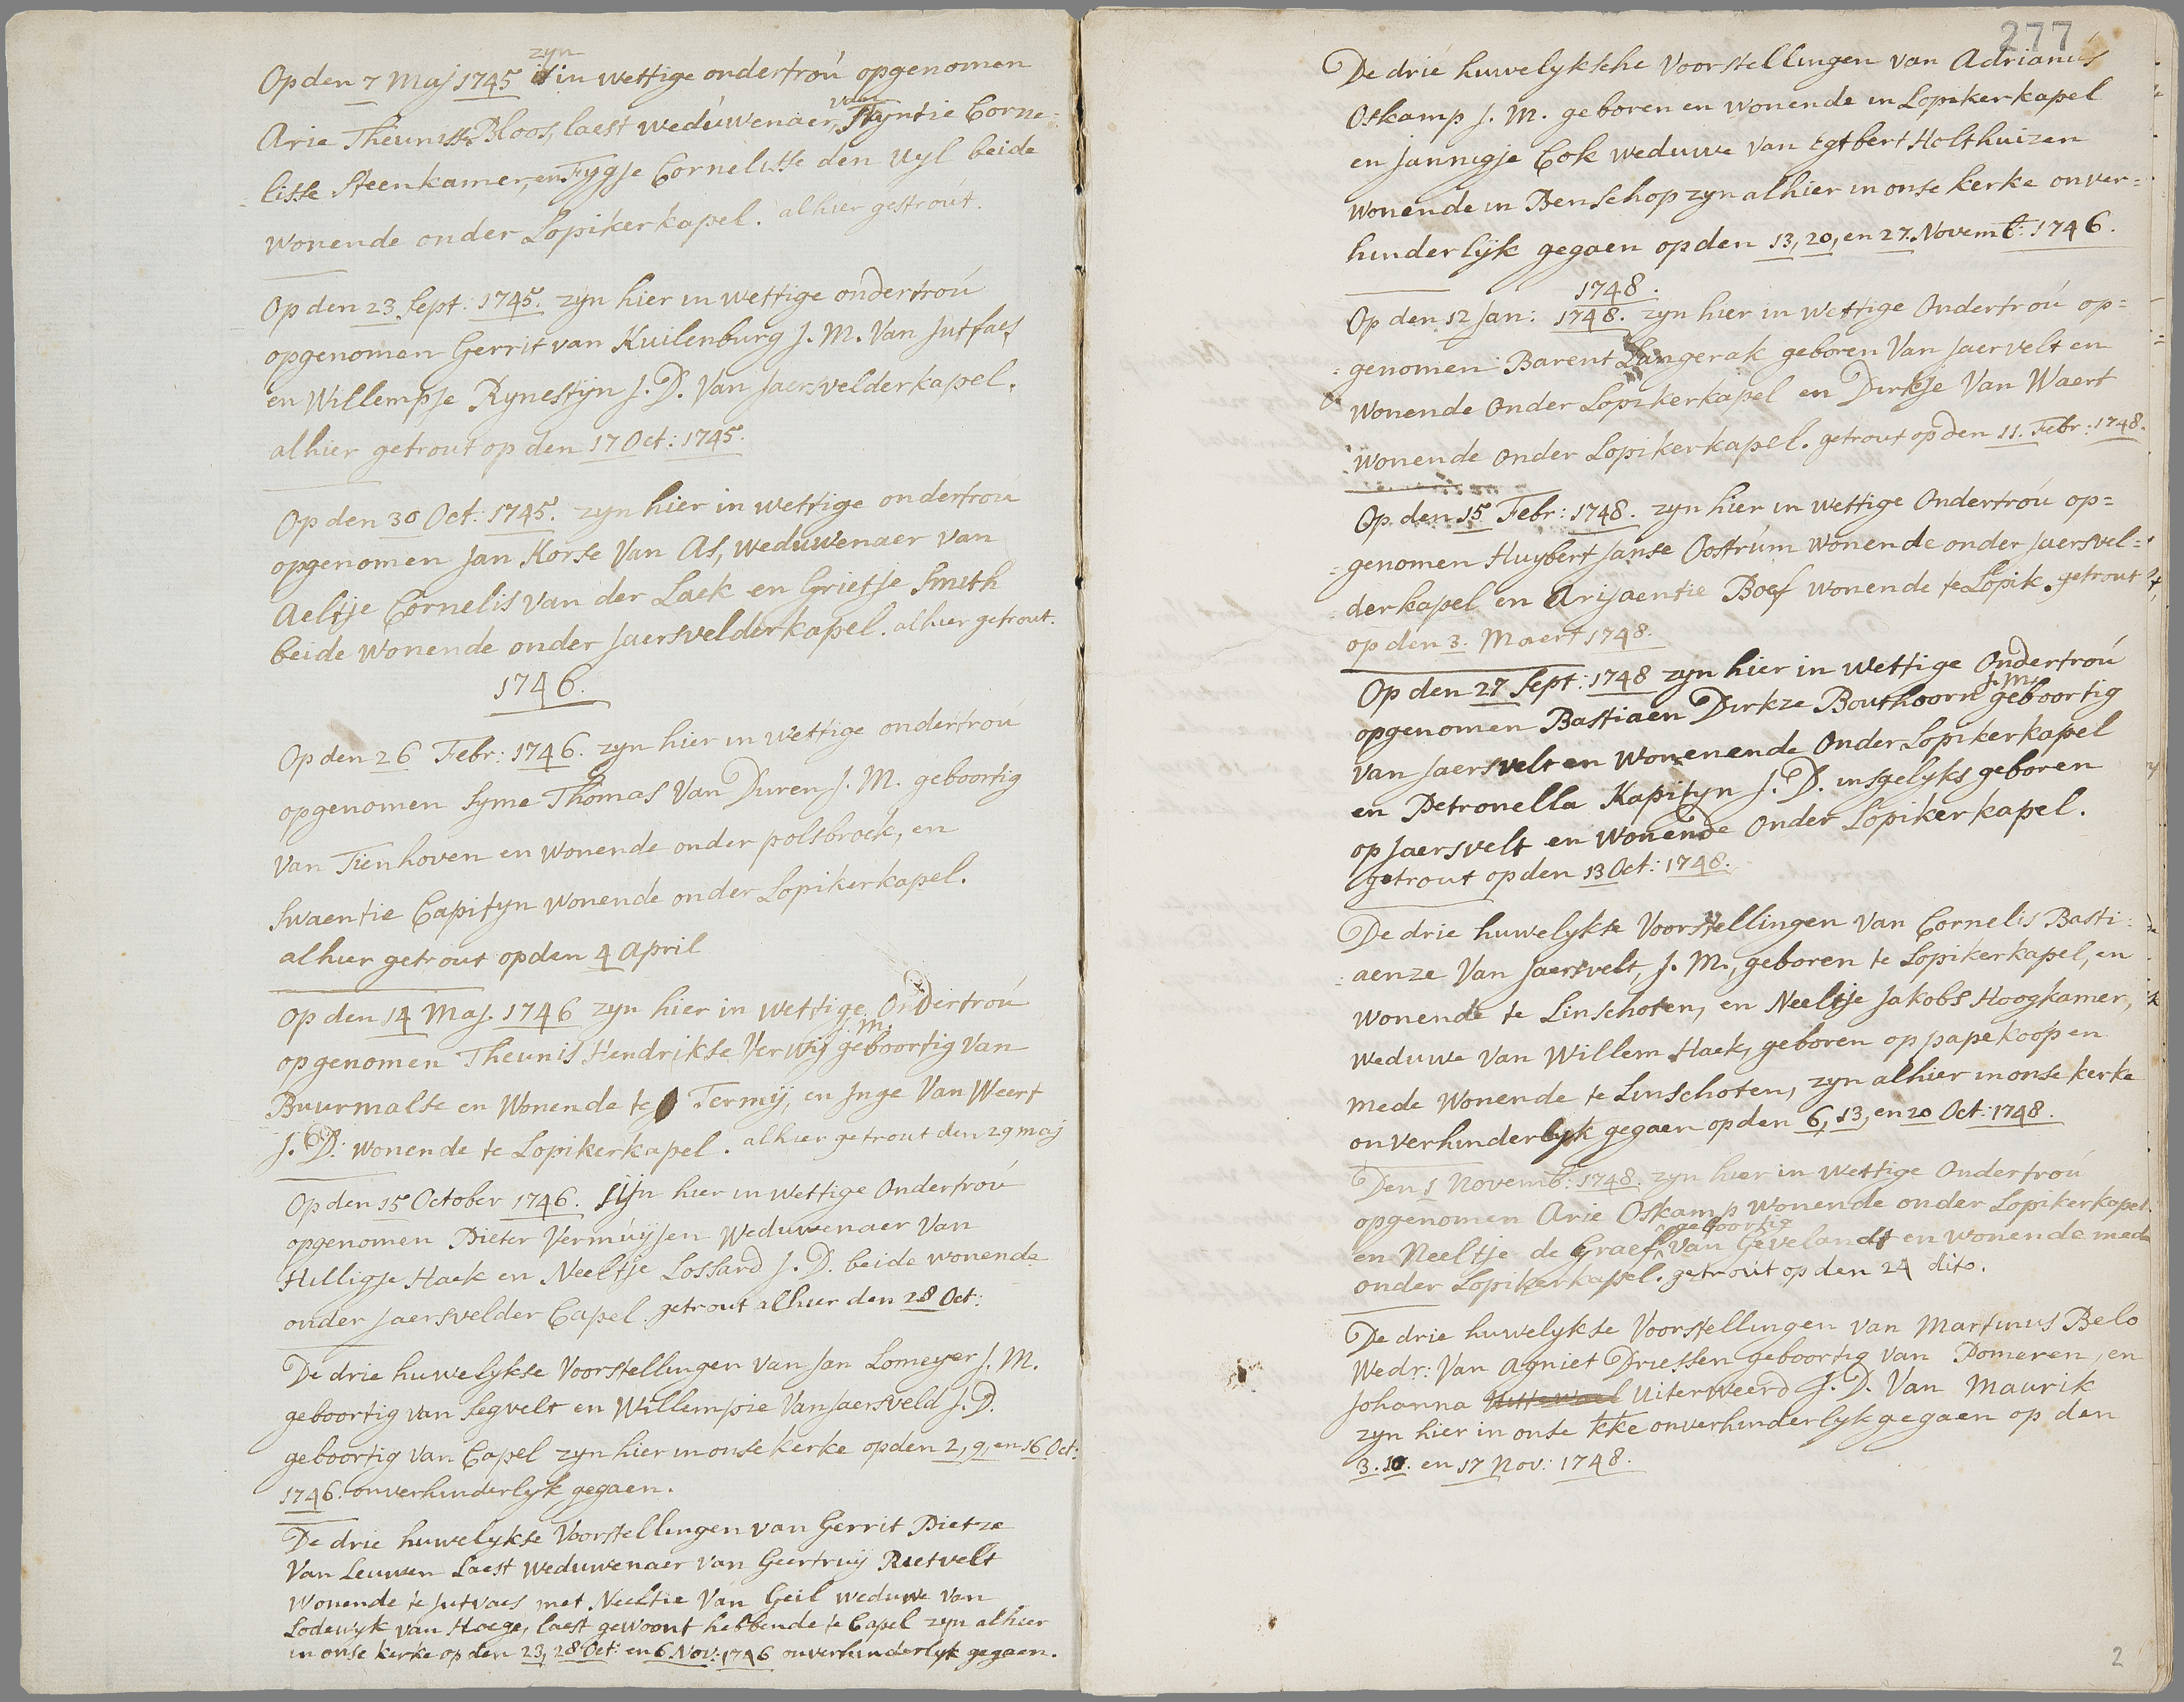 Op den 7 Maj 1745 zyn in wettige ondertroú opgenomen
Arie Theunisse Bloos, laest weduwenaer van Styntie Corne-
lisse Steenkamer, en Fygje Cornelisse den Uyl beide
wonende onder Lopikerkapel. alhier getrout.
Op den 23 Sept: 1745. zyn hier in wettige ondertroú
opgenomen Gerrit van Kuilenburg J. M. Van Jutfaes
en Willempje Rynestyn J. D. Van Jaersvelderkapel.
alhier getrout op den 17 Oct: 1745.
Op den 30 Oct: 1745. zyn hier in wettige ondertroú
opgenomen Jan Korse Van As, weduwenaer van
Aeltje Cornelis van der Laek en Grietje Smith
beide wonende onder Jaersvelderkapel. alhier getrout.
1746.
Op den 26 Febr: 1746. zyn hier in wettige ondertroú
opgenomen Syme Thomas Van Duren J. M. geboortig
Van Tienhoven en wonende onder polsbroek, en
Swaentie Capityn wonende onder Lopikerkapel.
alhier getrout op den 4 April
Op den 14 Maj. 1746 zyn hier in wettige Ondertroú
opgenomen Theunis Hendrikse Verwij J. M. geboortig Van
Buurmalse en Wonende te Termij, en Inge Van Weert
J. D. wonende te Lopikerkapel. alhier getrout den 29 maj
Op den 15 October 1746. sijn hier in wettige Ondertroú
opgenomen Pieter Vermúijsen Weduwenaer Van
Hilligje Haek en Neeltje Lossard J. D. beide wonende
onder Jaersvelder Capel. getrout alhier den 28 Oct:
De drie huwelykse Voorstellingen van Jan Lomeyer J. M.
geboortig van Segvelt en Willempie Van Jaersveld J. D.
geboortig Van Capel zyn hier in onse kerke op den 2, 9, en 16 Oct:
1746. onverhinderlyk gegaen.
De drie huwelykse Voorstellingen van Gerrit Pietze
Van Leuwen Laest Weduwenaer van Geertruij Rietvelt
Wonende te Jutvaes met Neeltie Van Geil weduwe van
Lodewyk van Hoege, laest gewoont hebbende te Capel zyn alhier
in onse kerke op den 23, 28 Oct: en 6 Nov: 1746 onverhinderlyk gegaen.
277
De drie huwelyksche Voorstellingen van Adrianus
Oskamp J. M. geboren en wonende in Lopikerkapel
en Jannigje Cok weduwe van Egtbert Holthuizen
wonende in Benschop zyn alhier in onse kerke onver=
hinderlijk gegaen op den 13, 20, en 27. Novemb: 1746.
1748.
Op den 12 Jan: 1748. zyn hier in wettige Ondertroú op=
=genomen Barent Langerak geboren Van Jaervelt en
wonende Onder Lopikerkapel en Dirkje Van Waert
wonende onder Lopikerkapel. getrout op den 11. Febr: 1748.
Op den 15 Febr: 1748. zyn hier in wettige Ondertroú op=
=genomen Huybert Janse Oostrúm wonende onder Jaersvel=
derkapel en Arijaentie Boef wonende te Lopik. getrout
op den 3. Maert 1748.
Op den 27 Sept: 1748 zyn hier in wettige Ondertroú
opgenomen Bastiaen Dirkze Bouthoorn J. M. geboortig
van Jaersvelt en Wonenende Onder Lopikerkapel
en Petronella Kapityn J. D. insgelyks geboren
op Jaersvelt en Wonende Onder Lopikerkapel.
getrout op den 13 Oct: 1748.
De drie huwelykse Voorstellingen Van Cornelis Basti=
=aenze Van Jaersvelt, J. M., geboren te Lopikerkapel, en
wonende te Linschoten, en Neeltje Jakobs Hoogkamer,
weduwe Van Willem Haek, geboren op papekoop en
mede wonende te Linschoten, zyn alhier in onse kerke
onverhinderlyk gegaen op den 6, 13, en 20 Oct: 1748.
Den 1 Novemb: 1748. zyn hier in wettige Ondertroú
opgenomen Arie Oskamp wonende onder Lopikerkapel
en Neeltje de Graef geboortig Van Gevelandt en wonende mede
onder Lopikerkapel. getroút op den 24 dito.
De drie huwelykse Voorstellingen van Martinus Belo
Wedr: Van Agniet Driessen geboortig van Pomeren, en
Johanna Uiterweerd J. D. Van Maurik
zyn hier in onse kke onverhinderlyk gegaen op den
3. 10. en 17 Nov: 1748.
2